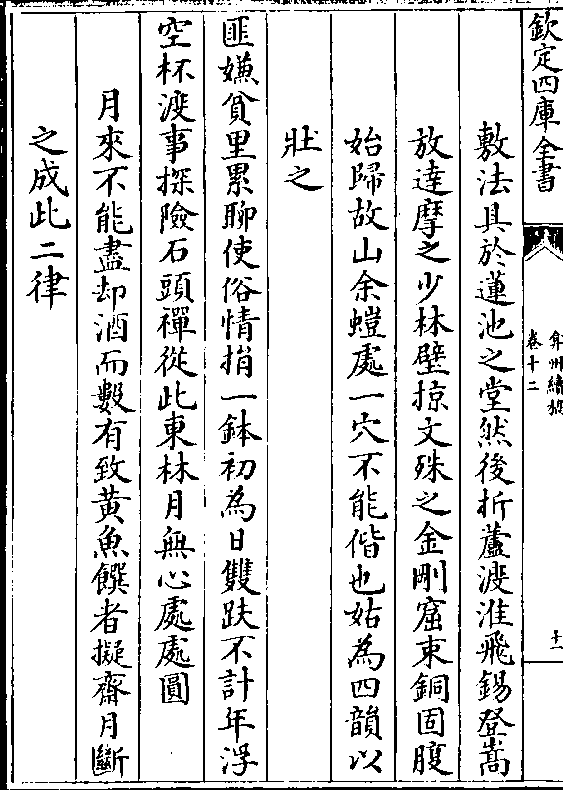 欽定四庫全書
弇州續稿
卷十二
十一
敷法具於蓮池之堂然後折蘆渡淮飛錫登嵩
放達摩之少林壁掠文殊之金剛窟束銅固腹
始歸故山余螘處一穴不能偕也姑為四韻以
壯之
匪嫌貧里累聊使俗情捐一鉢初為日雙趺不計年浮
空杯渡事探險石頭禪從此東林月無心處處圓
月來不能盡却酒而數有致黄魚饌者擬齋月斷
之成此二律